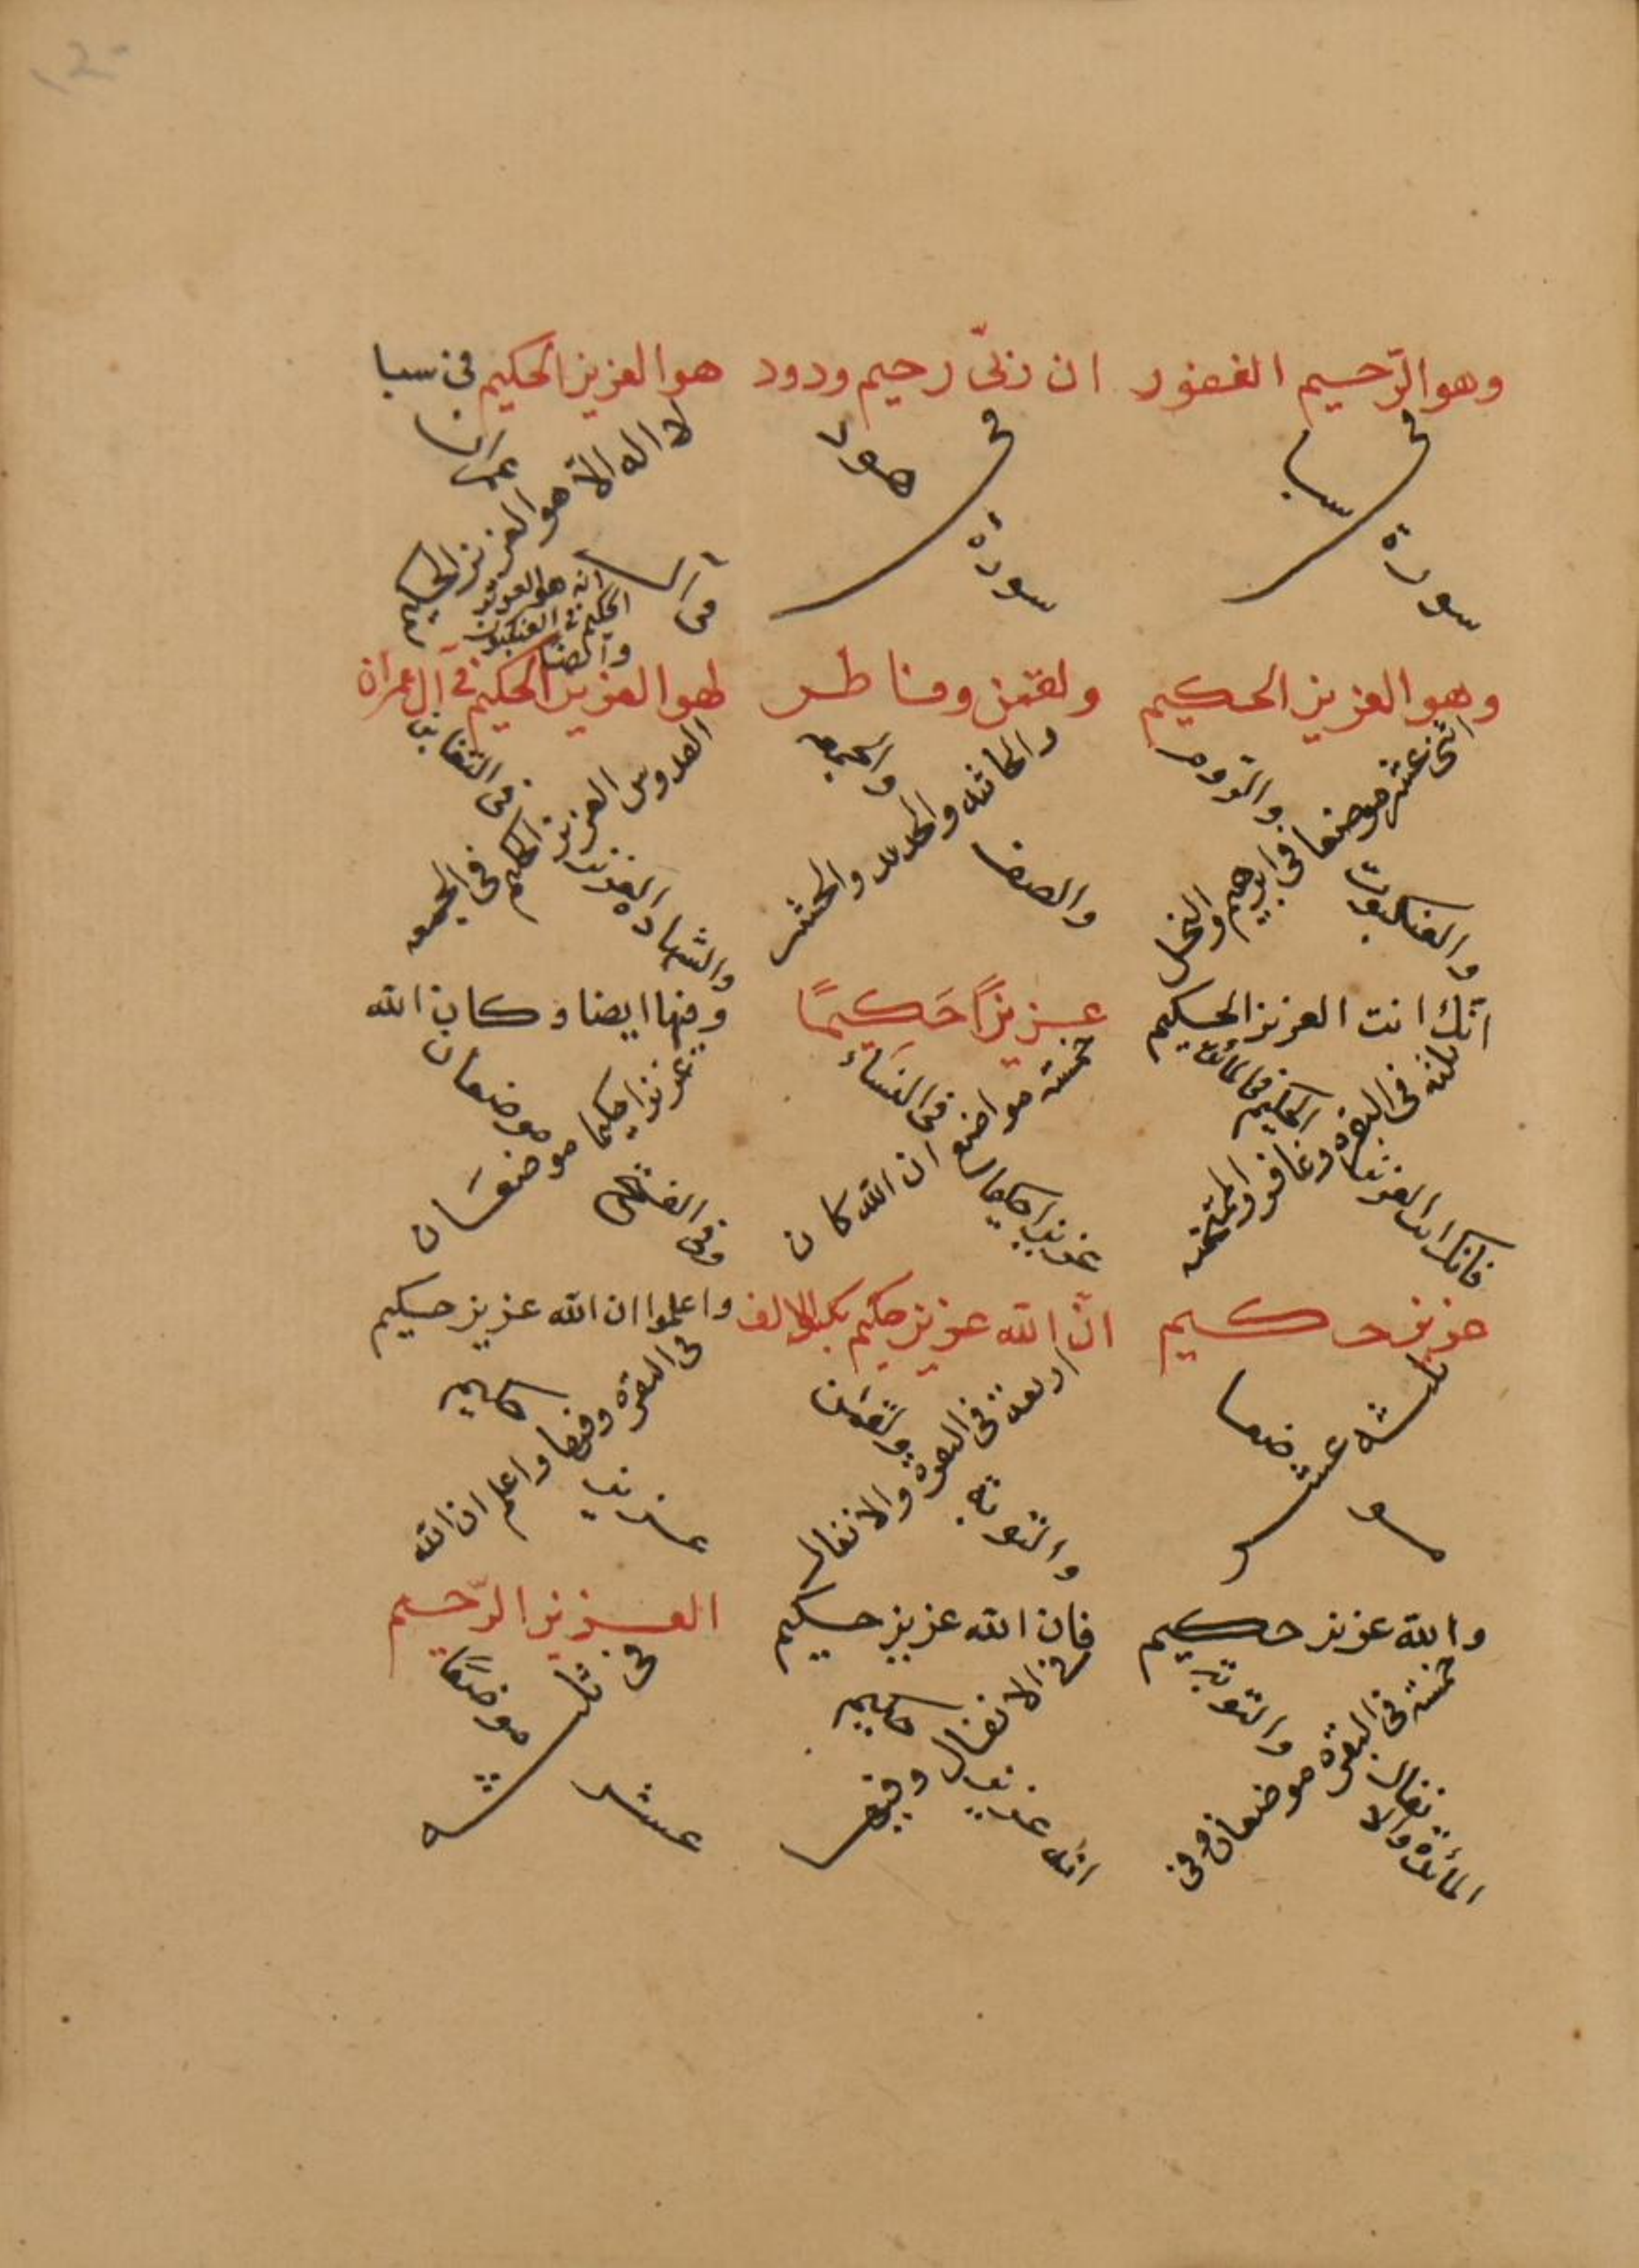 وهو الرّحيم الغفور
في
سورة سبا
ان ربّى رحيم ودود
في
سورة هود
هو العزيز الحكيم فى سبا
لا اله الّا هو العزيز الحكيم
فى آل عمران
انه هو العزيز
الحكيم فى العنكبوت
وهو العزيز الحكيم
اثنى عشر موضعا فى ابرهيم والنحل
والعنكبوت والرّوم
ولقمن وفاطر
والجاثيه والحديد والحشر
والصف والجمعه
لهو العزيز الحكيم فى آل عمران
القدوس العزيز الحكيم فى الجمعه
والشهاده العزيز الحكيم فى التغابن
انّك انت العزيز الحكيم
ثلثه فى البقره وغافر والممتحنه
فانك انت العزيز الحكيم فى المائده
عزيزًا حَكيمًا
خمسة مواضع ان الله كان
عزيزا حكيما فى النساء
وفيها ايضا وكان الله
عزيزا حكيما موضعان
وفى الفتح موضعان
عزيز حكيم
ثلثه عشر
موضعا
انّ الله عزيز حكيم
اربعة فى البقره والانفال
والتوبة ولقمن
واعلموا ان الله عزيز حكيم
فى البقره وفيها واعلم ان الله
عزيز حكيم
والله عزيز حكيم
خمسة فى البقره موضعان وفى
المائدة والانفال والتوبة
فان الله عزيز حكيم
فى الانفال وفيها
انّه عزيز حكيم
العزيز الرّحيم
فى ثلثه
عشر موضعا